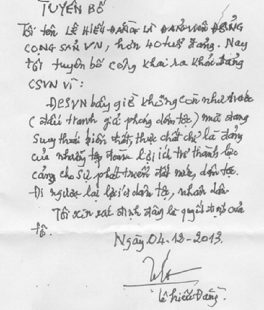 TUYÊN BỐ
Tôi tên LÊ HIẾU ĐẰNG là ĐẢNG VIÊN ĐẢNG
CỘNG SẢN VN, hơn 40 tuổi đảng. Nay
tôi tuyên bố công khai ra khỏi đảng
CSVN vì:
ĐCSVN bây giờ không còn như trước
(đấu tranh giải phóng dân tộc) mà đang
suy thoái biến chất, thực chất chỉ là đảng
của những tập đoàn lợi ích
cảng cho sự phát triển đất nước, dân tộc.
Đi ngược lại lợi ích dân tộc, nhân dân
Tôi xin xác định đây là quyết định của
tôi.
Ngày 04-12-2013.
Lê Hiếu Đằng.